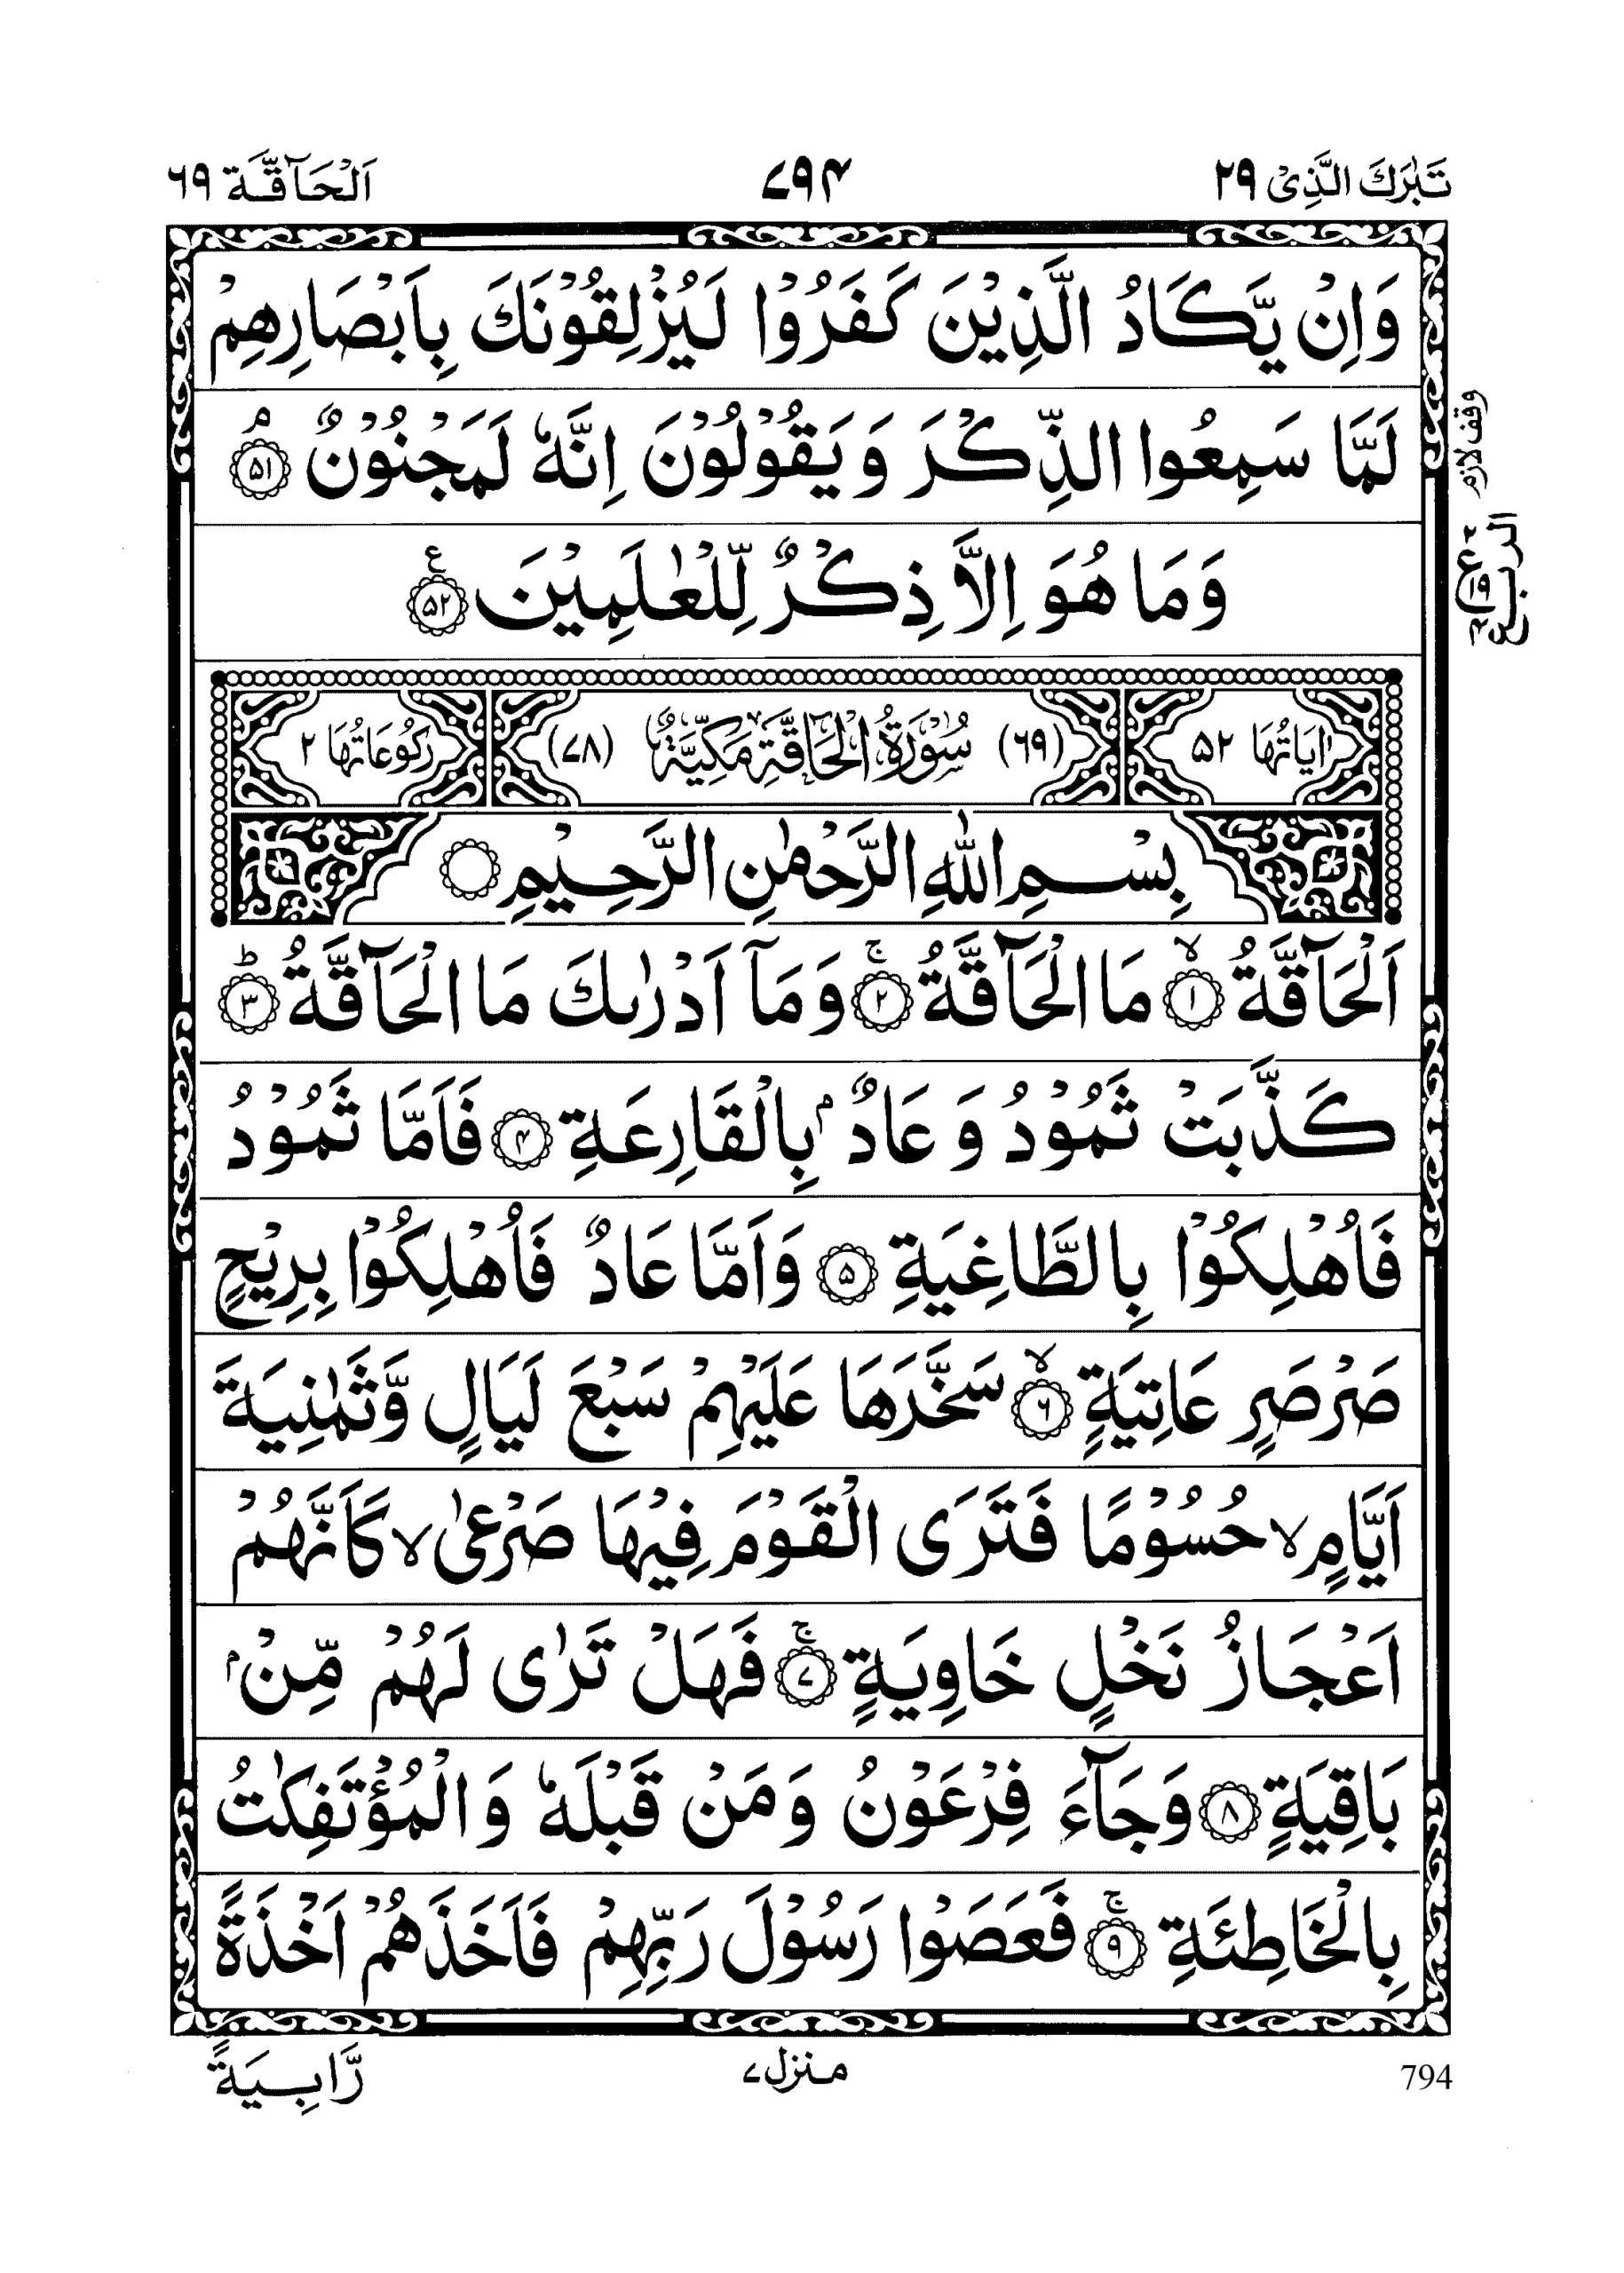 تَبٰرَكَ الَّذِیْ ۲۹ ۷۹۴ اَلْحَآقَّة ۶۹
وَاِنْ یَّكَادُ الَّذِیْنَ كَفَرُوْا لَیُزْلِقُوْنَكَ بِاَبْصَارِهِمْ
لَمَّا سَمِعُوا الذِّكْرَ وَ یَقُوْلُوْنَ اِنَّهٗ لَمَجْنُوْنٌ ۘ ﴿۵۱﴾
وقف لازم
وَمَا هُوَ اِلَّا ذِكْرٌ لِّلْعٰلَمِیْنَ ﴿۵۲﴾ ع
الربع
۲ ع ۱۹ ۴
اٰیَاتُهَا ۵۲ (۶۹) سُوْرَةُ الْحَآقَّةِ مَكِّیَّةٌ (۷۸) رُكُوْعَاتُهَا ۲
بِسْمِ اللّٰهِ الرَّحْمٰنِ الرَّحِیْمِ
اَلْحَآقَّةُ ﴿۱﴾ ۙ مَا الْحَآقَّةُ ﴿۲﴾ ۚ وَمَاۤ اَدْرٰىكَ مَا الْحَآقَّةُ ﴿۳﴾ ؕ
كَذَّبَتْ ثَمُوْدُ وَ عَادٌۢ بِالْقَارِعَةِ ﴿۴﴾ فَاَمَّا ثَمُوْدُ
فَاُهْلِكُوْا بِالطَّاغِیَةِ ﴿۵﴾ وَاَمَّا عَادٌ فَاُهْلِكُوْا بِرِیْحٍ
صَرْصَرٍ عَاتِیَةٍ ﴿۶﴾ ۙ سَخَّرَهَا عَلَیْهِمْ سَبْعَ لَیَالٍ وَّثَمٰنِیَةَ
اَیَّامٍ ۙ حُسُوْمًا فَتَرَى الْقَوْمَ فِیْهَا صَرْعٰى ۙ كَاَنَّهُمْ
اَعْجَازُ نَخْلٍ خَاوِیَةٍ ﴿۷﴾ ۚ فَهَلْ تَرٰى لَهُمْ مِّنْۢ
بَاقِیَةٍ ﴿۸﴾ وَجَآءَ فِرْعَوْنُ وَمَنْ قَبْلَهٗ وَالْمُؤْتَفِكٰتُ
بِالْخَاطِئَةِ ﴿۹﴾ ۚ فَعَصَوْا رَسُوْلَ رَبِّهِمْ فَاَخَذَهُمْ اَخْذَةً
رَّابِیَةً
794 منزل ۷